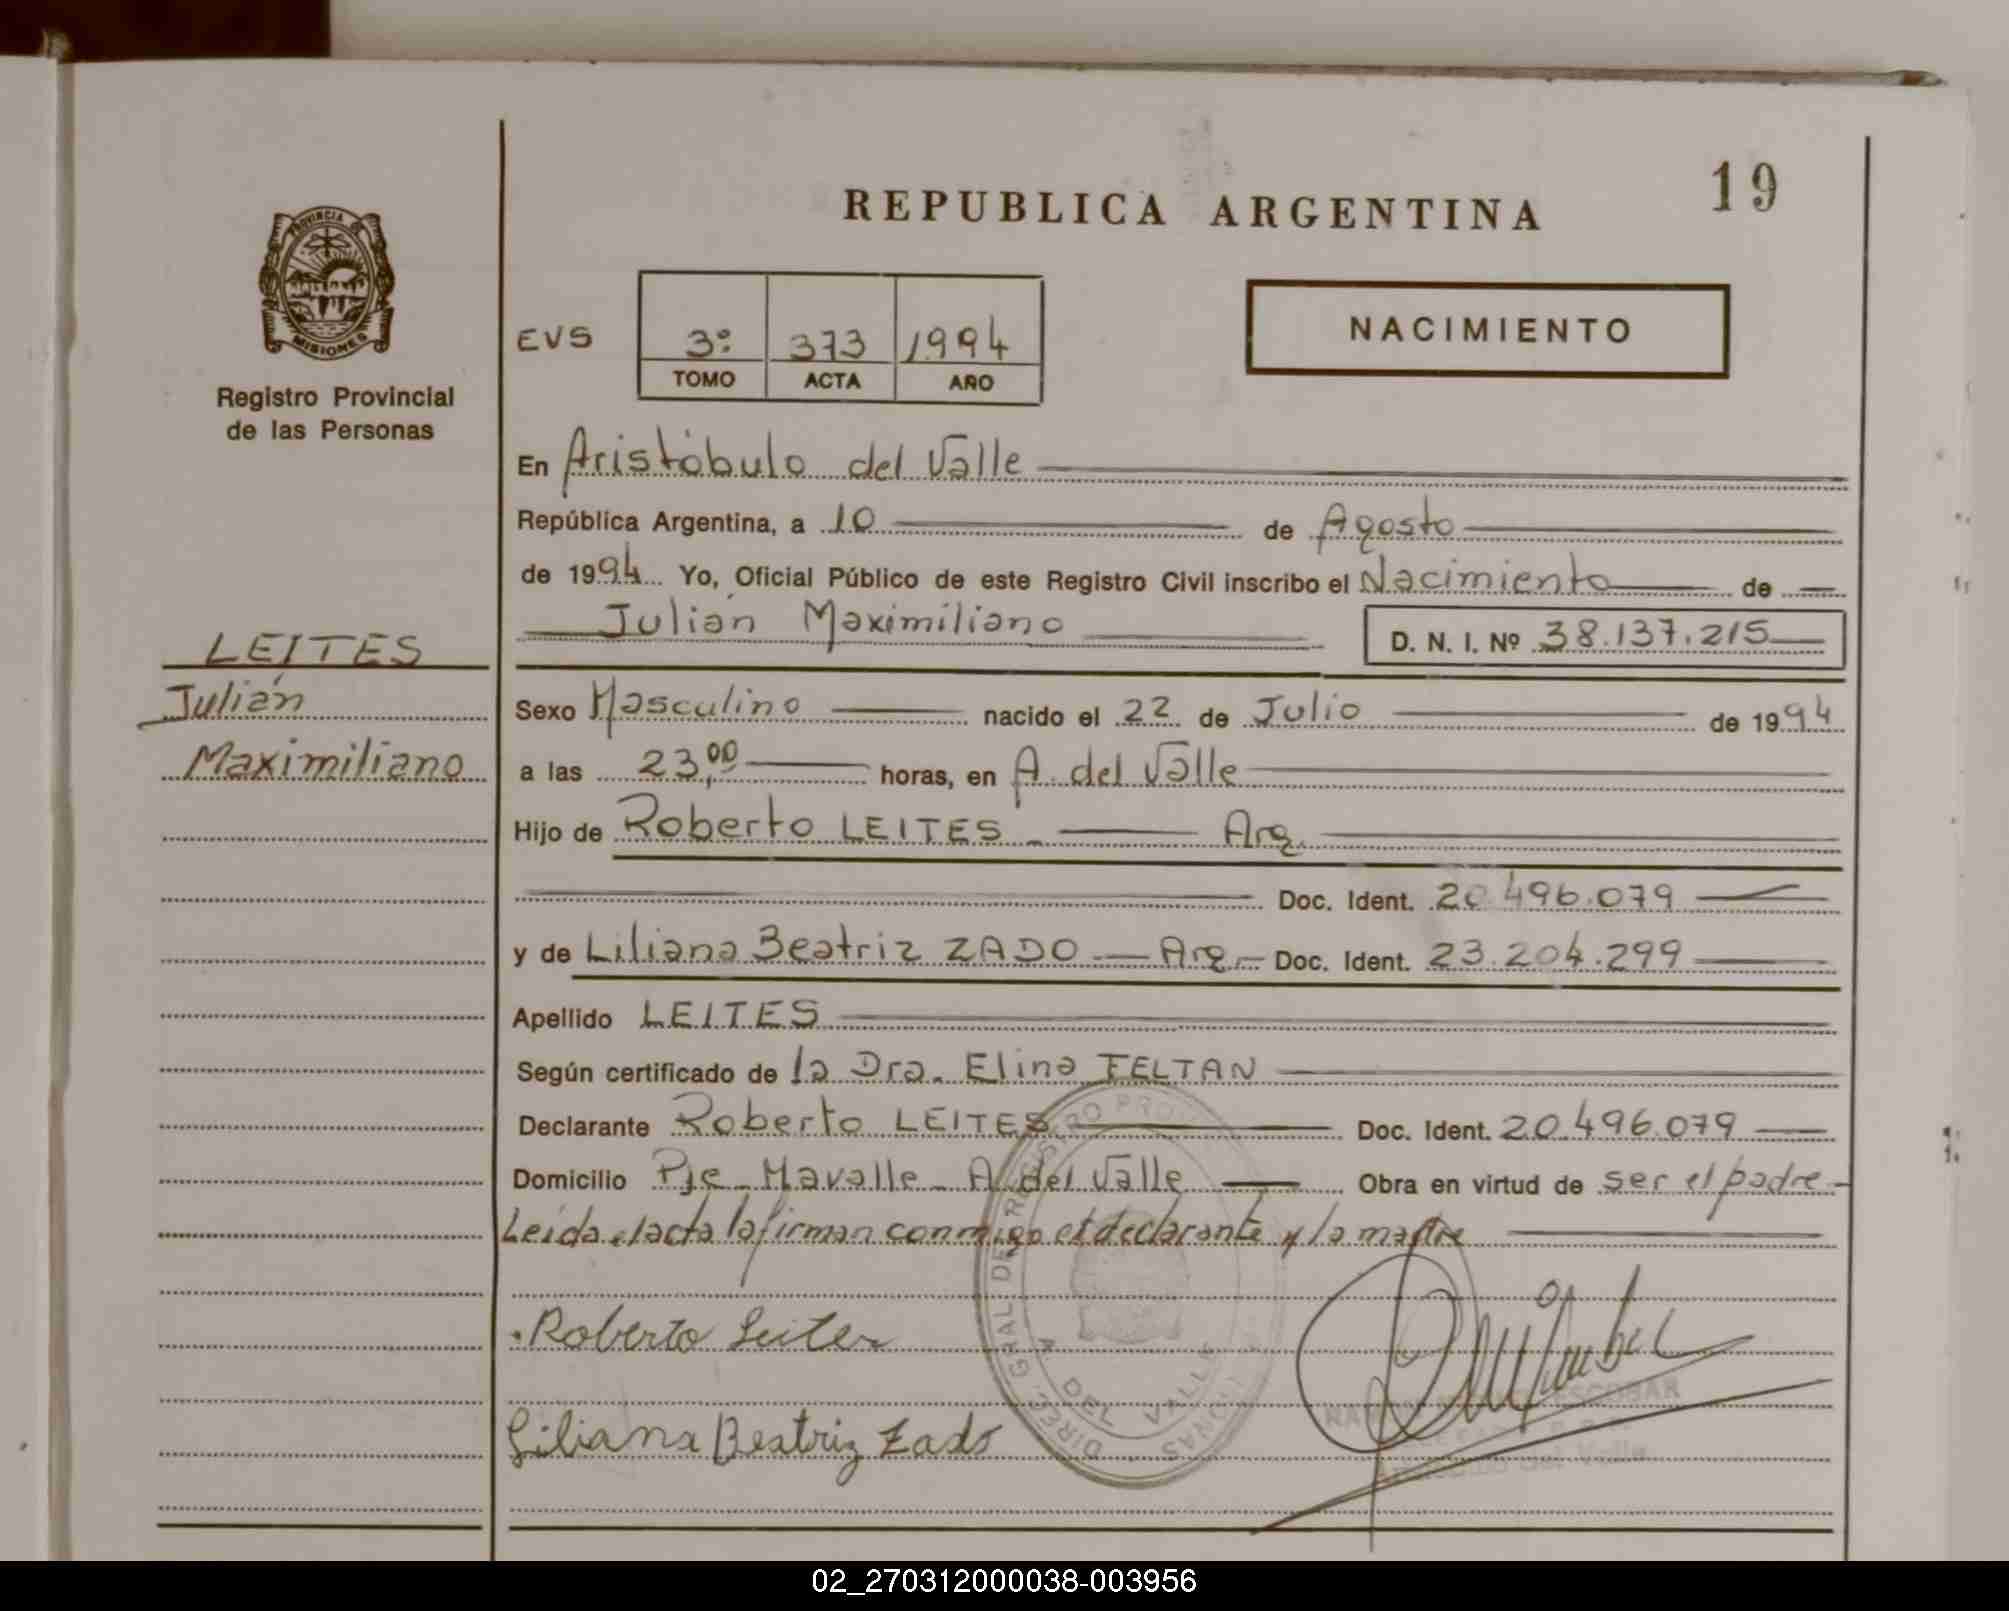 19
REPUBLICA ARGENTINA
PROVINCIA DE
MISIONES
Registro Provincial
de las Personas
EVS
3º 373 1994
TOMO ACTA AÑO
NACIMIENTO
En Aristóbulo del Valle
República Argentina, a 10 de Agosto
de 1994 Yo, Oficial Público de este Registro Civil inscribo el Nacimiento de
Julián Maximiliano D. N. I. Nº 38.137.215
LEITES
Julián
Maximiliano
Sexo Masculino nacido el 22 de Julio de 1994
a las 23,00 horas, en A. del Valle
Hijo de Roberto LEITES Arg.
Doc. Ident. 20.496.079
y de Liliana Beatriz ZADO Arg. Doc. Ident. 23.204.299
Apellido LEITES
Según certificado de la Dra. Elina FELTAN
Declarante Roberto LEITES Doc. Ident. 20.496.079
Domicilio Pje Mavalle - A. del Valle Obra en virtud de ser el padre
Leída el acta la firman conmigo el declarante y la madre
Roberto Leites
Liliana Beatriz Zado
DIREC. GRAL DE REGISTRO PROV.
A. DEL VALLE
ESCOBAR
del Valle
02_270312000038-003956